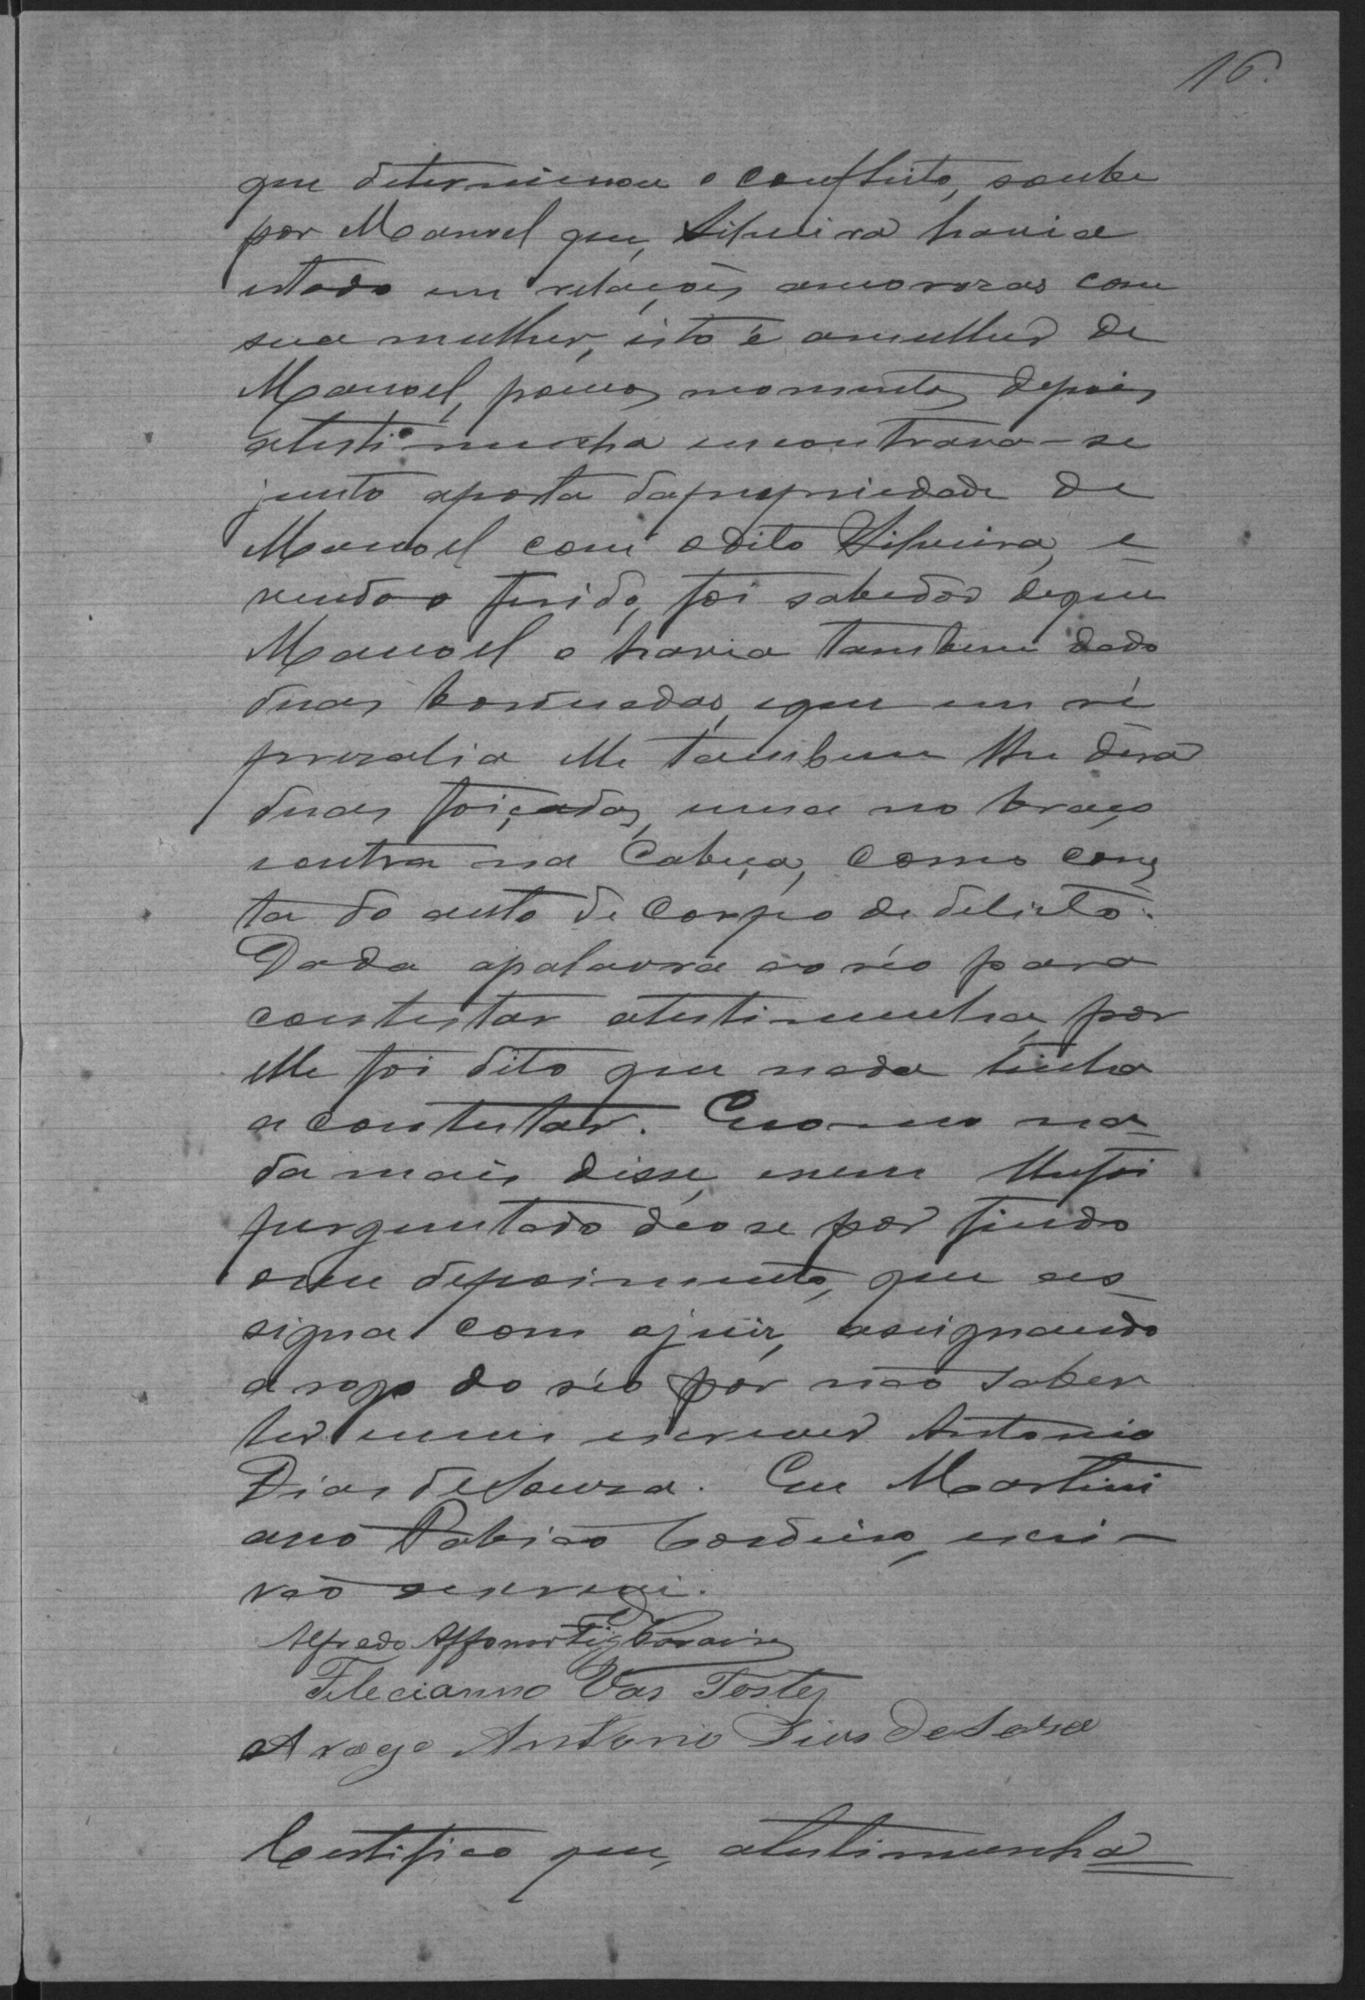 16.
que determinou o conflicto, soube
por Manoel que, Siqueira havia
estado em relações amorozas com
sua mulher, isto é amulher de
Manoel, poucos momentos depois
atestimunha encontrava-se
junto aporta dapropriedade de
Manoel com odito Siqueira, e
vendo o ferido, foi sabedor deque
Manoel o havia tambem dado
duas bordoadas, eque em re
prezalia elle tambem lhe déra
duas foiçadas, uma no braço
eoutra na Cabeça, como cons
ta do auto de Corpo de delicto.
Dada apalavra ao réo para
contestar atestimunha, por
elle foi dito que nada tinha
a contestar. Ecomo na
da mais disse, enem lhefoi
perguntado déose por findo
oseu depoimento, que as
signa com ojuiz, assignando
arogo do réo por não saber
ler enem escrever Antonio
Dias deSouza. Eu Martini
ano Cordeiro, escri-
vão oescrevi.
Alfredo Affonso
Felecianno Vas Tostes
A rogo Antonio Dias de Soza
Certifico que, atestimunha